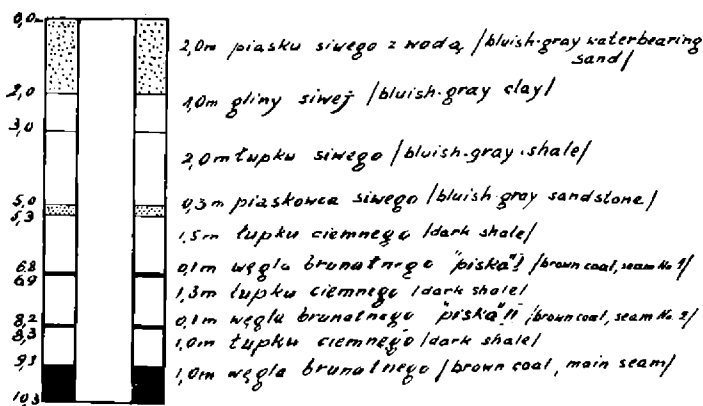 0,0m
2,0m piasku siwego z wodą /bluish-gray waterbearing
sand/
2,0
1,0m gliny siwej /bluish-gray clay/
3,0
2,0m łupku siwego /bluish-gray shale/
5,0
0,3m piaskowca siwego /bluish gray sandstone/
5,3
1,5m łupku ciemnego /dark shale/
6,8
0,1m węgla brunatnego "piska"! /brown coal, seam No 1/
6,9
1,3m łupku ciemnego /dark shale/
8,2
0,1m węgla brunatnego "piska"!! /brown coal, seam No. 2/
8,3
1,0m łupku ciemnego /dark shale/
9,3
1,0m węgla brunatnego /brown coal, main seam/
10,3